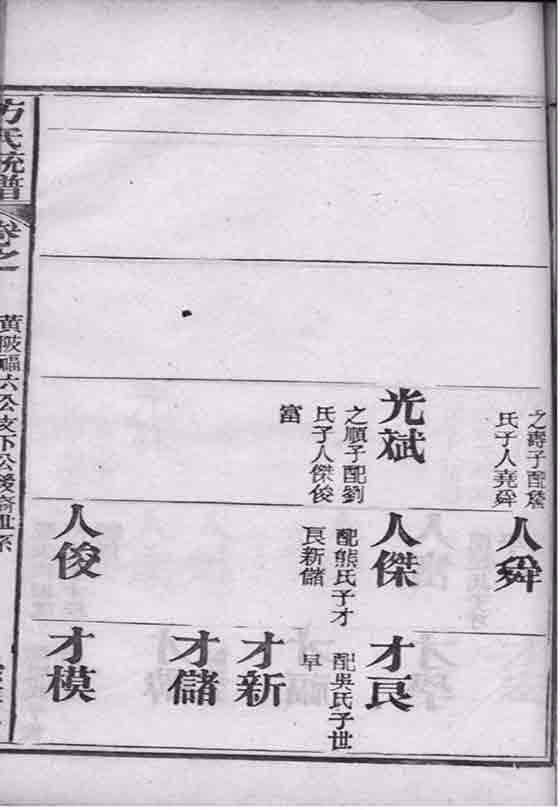 之壽子配詹
氏子人堯舜
光斌
之順子配劉
氏子人傑俊
富
人舜
人傑
配熊氏子才
良新儲
人俊
才良
配吳氏子世
早
才新
才儲
才模
方氏統譜
卷之一
黃陂福六公支下公後裔世系